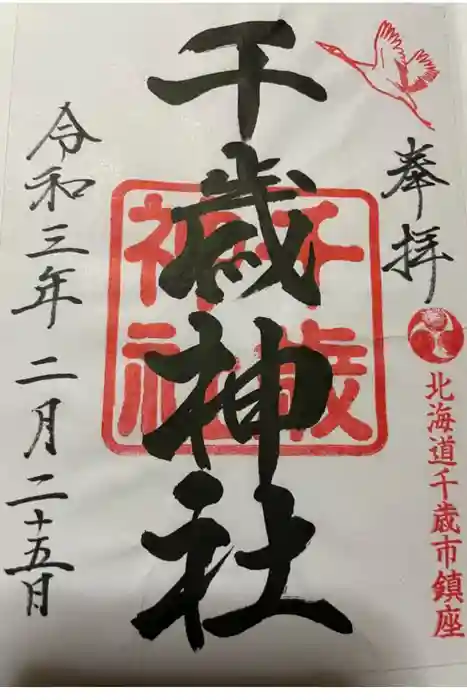 奉拝
北海道千歳市鎮座
千歳神社
千歳
神社
令和三年二月二十五日